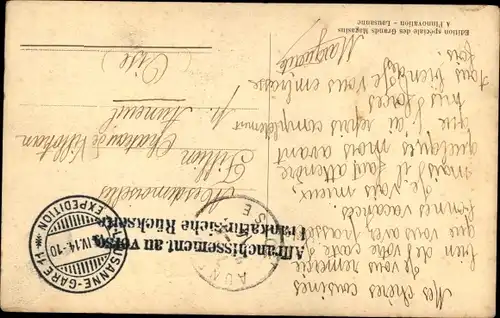 Edition spéciale des Grands Magasins
A l'Innovation - Lausanne
Mes chères cousines
Je vous remercie
bien de votre carte
que vous avez
bonnes vacances.
Je vais mieux,
mais il faut attendre
quelques mois avant
que j'ai repris complètement
mes forces
Je vous embrasse
tous bien
fort.
Marguerite
Mesdemoiselles
Tillion
Château de Villotran
p. Auneuil
(Oise)
Affranchissement au verso.
Frankatur siehe Rückseite.
LAUSANNE-GARE
EXPÉDITION
IV.14.-10
AUNEUIL
OISE